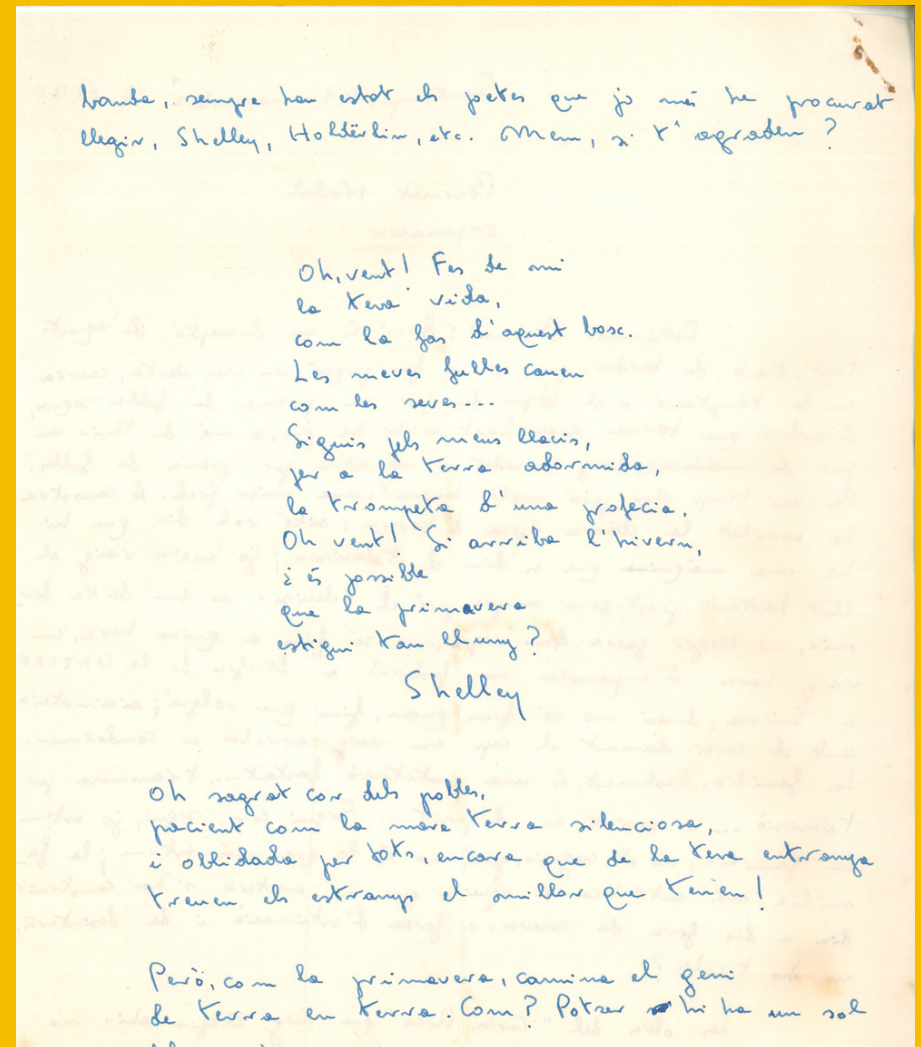 banda, sempre han estat els poetes que jo més he procurat
llegir, Shelley, Holdërlin, etc. Mem, si t'agraden?
Oh, vent! Fes de mi
la teva vida,
com la fas d'aquest bosc.
Les meves fulles cauen
com les seves...
Siguis pels meus llavis,
per a la terra adormida,
la trompeta d'una profecia.
Oh vent! Si arriba l'hivern,
¿és possible
que la primavera
estigui tan lluny?
Shelley
Oh sagrat cor dels pobles,
pacient com la mare terra silenciosa,
i oblidada per tots, encara que de la teva entranya
treuen els estranys el millor que tenien!
Però, com la primavera, camina el geni
de terra en terra. Com? Potser hi ha un sol